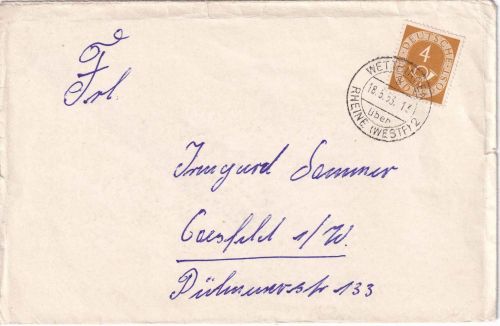 Frl.
DEUTSCHE POST
4
WETT
18.5.53.
über
RHEINE (WESTF) 2
Irmgard Sommer
Coesfeld i/W.
Dülmenerstr 133